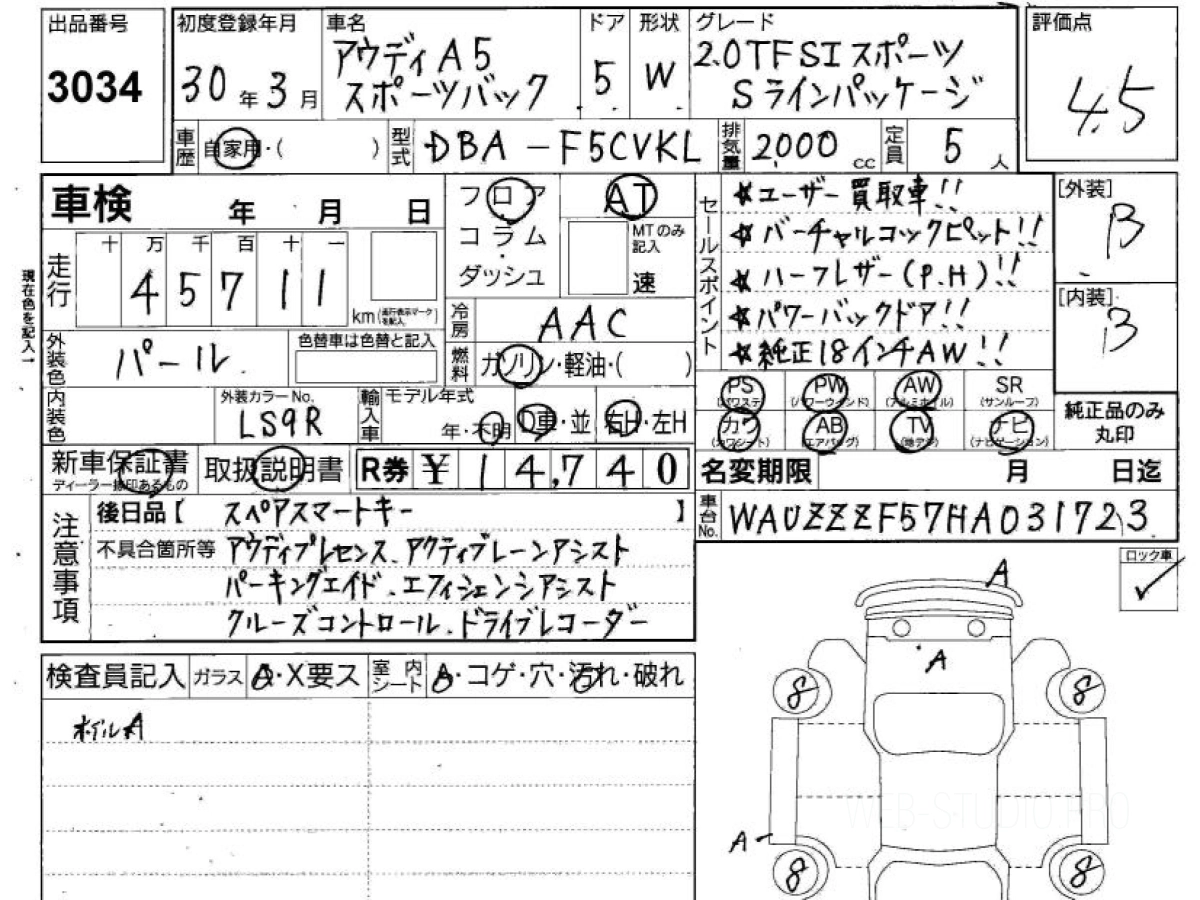 出品番号
3034
初度登録年月
30年3月
車名
アウディA5
スポーツバック
ドア
5
形状
W
グレード
2.0TFSIスポーツ
Sラインパッケージ
評価点
4.5
車歴 自家用・( )
型式 DBA-F5CVKL
排気量 2,000cc
定員 5人
車検 年 月 日
走行
十 万 千 百 十 一
4 5 7 1 1
km(走行表示マークを記入)
現在色を記入→
外装色 パール
色替車は色替と記入
内装色
外装カラーNo.
LS9R
フロア
コラム
ダッシュ
AT
MTのみ記入
速
冷房 AAC
燃料 ガソリン・軽油・( )
輸入車
モデル年式
年・不明
D車・並
右H・左H
セールスポイント
☆ユーザー買取車!!
☆バーチャルコックピット!!
☆ハーフレザー(P.H)!!
☆パワーバックドア!!
☆純正18インチAW!!
[外装]
B
[内装]
B
PS (パワステ)
PW (パワーウインド)
AW (アルミホイル)
SR (サンルーフ)
カワ (カワシート)
AB (エアバッグ)
TV (地デジ)
ナビ (ナビゲーション)
純正品のみ
丸印
新車保証書
ディーラー捺印あるもの
取扱説明書
R券 ¥14,740
名変期限 月 日迄
車台No. WAUZZZF57HA031723
注意事項
後日品【 スペアスマートキー 】
不具合箇所等 アウディプレセンス、アクティブレーンアシスト
パーキングエイド、エフィシェンシアシスト
クルーズコントロール、ドライブレコーダー
ロック車
検査員記入
ガラス A・X要ス
室内シート A・コゲ・穴・汚れ・破れ
ホイルA
A
A
8
8
A
8
8
WEB-STUDIO.PRO